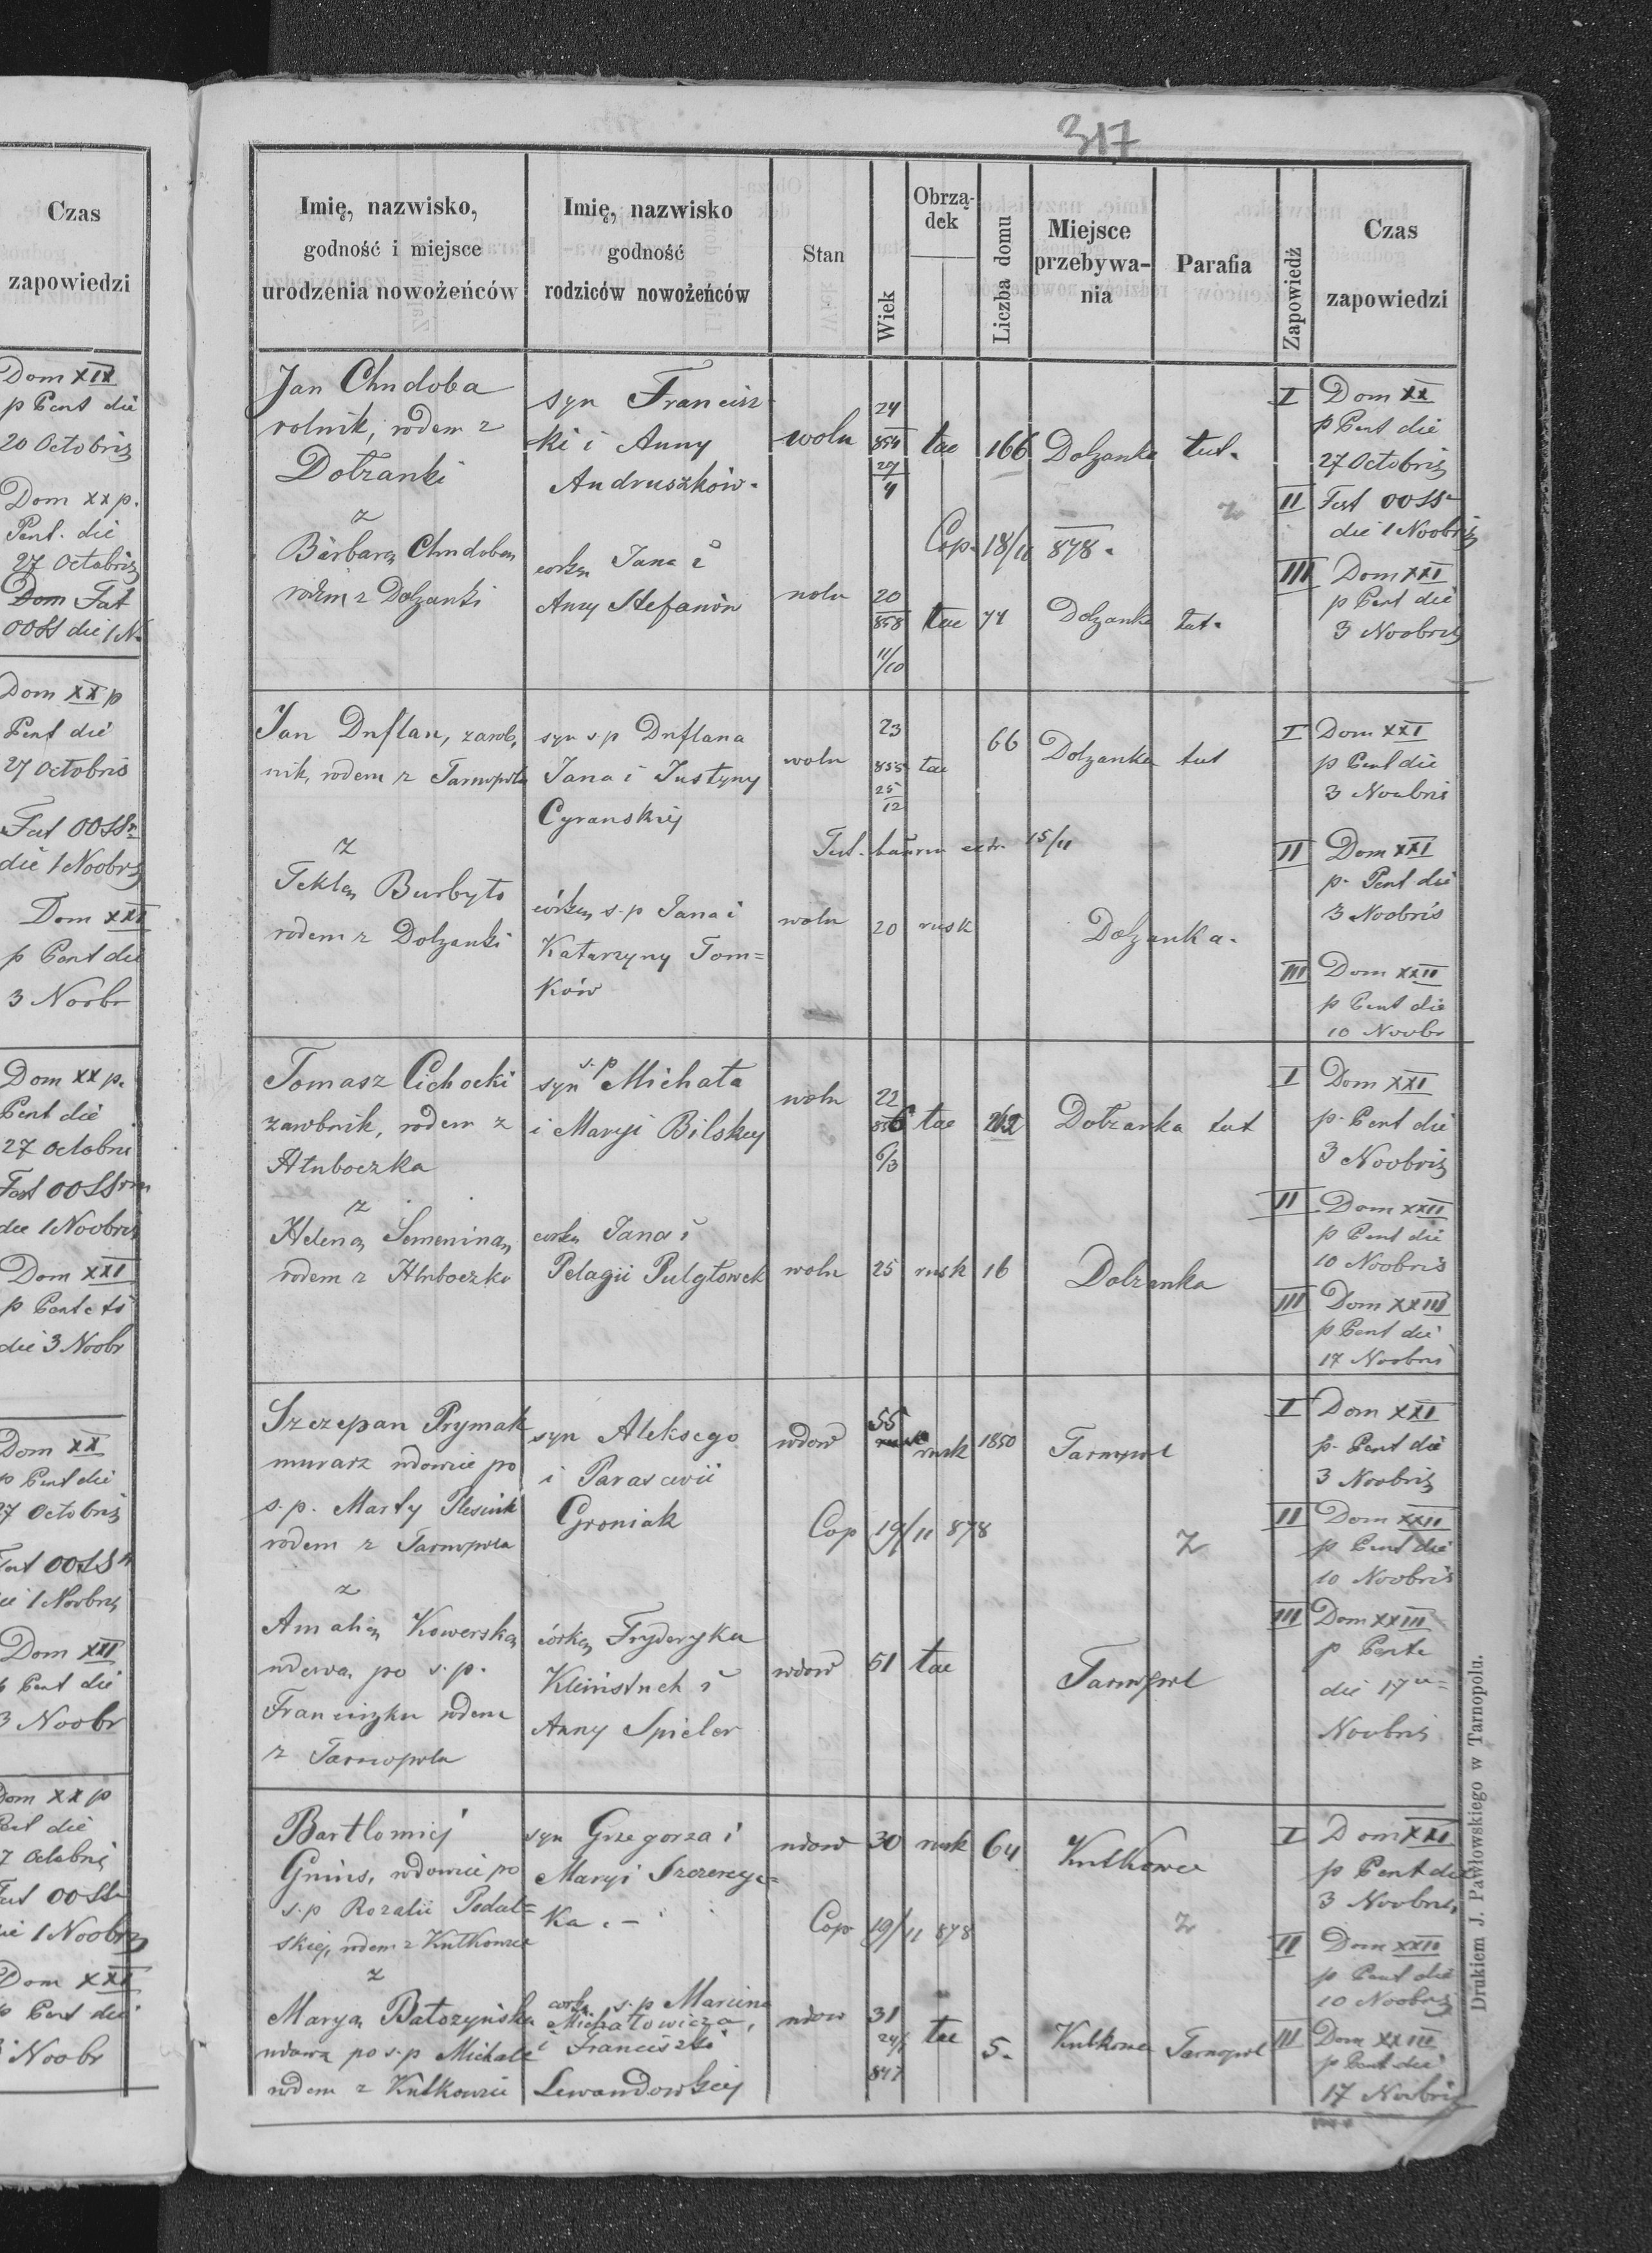 Czas
zapowiedzi
Dom XIX
p Pent die
20 Octobris
Dom XX p.
Pent. die
27 Octobris
Dom Fst
OOSS die 1 N
Dom XX p
Pent die
27 Octobris
Fst OOSS
die 1 Noobris
Dom XXI
p Pent die
3 Noobr
Dom XX p.
Pent die
27 Octobris
Fest OOSS
die 1 Noobris
Dom XXI
p Pent
die 3 Noobr
Dom XX
p Pent die
27 Octobris
Fst OOSS
1 Noobris
Dom XXI
p Pent die
3 Noobr
Dom XX p
Pent die
7 Octobris
Fst OOSS
die 1 Noobris
Dom XXI
p Pent die
3 Noobr
317
Imię, nazwisko,
godność i miejsce
urodzenia nowożeńców
Imię, nazwisko
godność
rodziców nowożeńców
Stan
Wiek
Obrzą-
dek
Liczba domu
Miejsce
przebywa-
nia
Parafia
Zapowiedź
Czas
zapowiedzi
Jan Chudoba
rolnik, rodem z
Dołżanki
syn Francisz
ki i Anny
Andruszków.
woln
24
854
27
4
łac
166
Dołżanka
tut.
I Dom XX
p Pent die
27 Octobris
II Fest OOSS
die 1 Noobris
III Dom XXI
p Pent die
3 Noobris
z
Cop. 18/11 878.
Barbarą Chudobą
rodem z Dołżanki
córką Jana i
Anny Stefanów
woln
20
858
11/10
łac
77
Dołżanka
tut.
Jan Duflan, zarob,
nik, rodem z Tarnopola
syn s.p Duflana
Jana i Justyny
Cyranskiej
woln
23
855
25
12
łac
66
Dołżanka
tut
I Dom XXI
p Pent die
3 Noobris
Test. bannor extr. 15/11
II Dom XXI
p. Pent die
3 Noobris
z
Teklą Burbyło
rodem z Dołżanki
córką s.p Jana i
Katarzyny Tom=
ków
woln
20
rusk
Dołżanka.
III Dom XXII
p Pent die
10 Noobr
Tomasz Cichocki
zarobnik, rodem z
Hłuboczka
syn s.p Michała
i Maryi Bilskiej
woln
22
856
6/3
łac
262
Dołżanka
tut
I Dom XXI
p. Pent die
3 Noobris
z
Heleną Semeniną,
rodem z Hłuboczka
córką Jana i
Pelagii Pulgłowek
woln
25
rusk
16
Dołżanka
II Dom XXII
p Pent die
10 Noobris
III Dom XXIII
p Pent die
17 Noobris
Szczepan Prymak
murarz wdowiec po
s.p. Marty Plesiuk
rodem z Tarnopola
syn Aleksego
i Parascewii
Groniak
wdow
55
rusk
1850
Tarnopol
I Dom XXI
p. Pent die
3 Noobris
Cop 19/11 878
z
II Dom XXII
p Pent die
10 Noobris
z
Amalią Kowerską
wdową po s.p.
Franciszku rodem
z Tarnopola
córką Fryderyka
Kleinstuck i
Anny Spieler
wdow
51
łac
Tarnopol
III Dom XXIII
p Pente
die 17
Noobris
Bartłomiej
Gnius, wdowiec po
s.p Rozalii Podal=
skiej, rodem z Kutkowiec
syn Grzegorza i
Maryi Szczerecz=
ka. -
wdow
30
rusk
64
Kutkowce
I Dom XXI
p Pent die
3 Noobris
Cop 19/11 878
z
II Dom XXII
p Pent die
10 Noobris
z
Maryą Batożyńską
wdową po s.p Michale
rodem z Kutkowiec
córką s.p Marcina
Michałowicza,
i Franciszki
Lewandowskiej
wdow
31
24/
847
łac
5.
Kutkowce
Tarnopol
III Dom XXIII
p Pent die
17 Noobris
Drukiem J. Pawłowskiego w Tarnopolu.